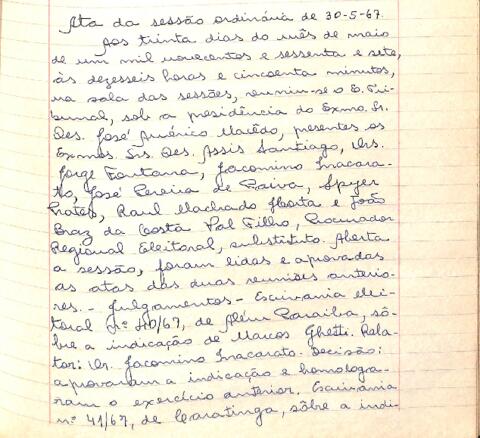 Ata da sessão ordinária de 30-5-67.
Aos trinta dias do mês de maio
de um mil novecentos e sessenta e sete,
às dezesseis horas e cincoenta minutos,
na sala das sessões, reuniu-se o E. Tri-
bunal, sob a presidência do Exmo. Sr.
Des. José Américo Macêdo, presentes os
Exmos. Srs. Des. Assis Santiago, Drs.
Jorge Fontana, Jacomino Inacara-
to, José Pereira de Paiva, Spyer
Prates, Raul Machado Horta e João
Braz da Costa Val Filho, Procurador
Regional Eleitoral, substituto. Aberta
a sessão, foram lidas e aprovadas
as atas das duas reuniões anterio-
res. - Julgamentos - Escrivania elei-
toral nº 40/67, de Além Paraiba, sô-
bre a indicação de Marcos Ghetti. Rela-
tor: Dr. Jacomino Inacarato. Decisão:
aprovaram a indicação e homologa-
ram o exercício anterior. Escrivania
nº 41/67, de Caratinga, sôbre a indi-